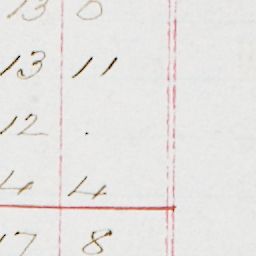 13 0
13 11
12 .
4 4
17 8